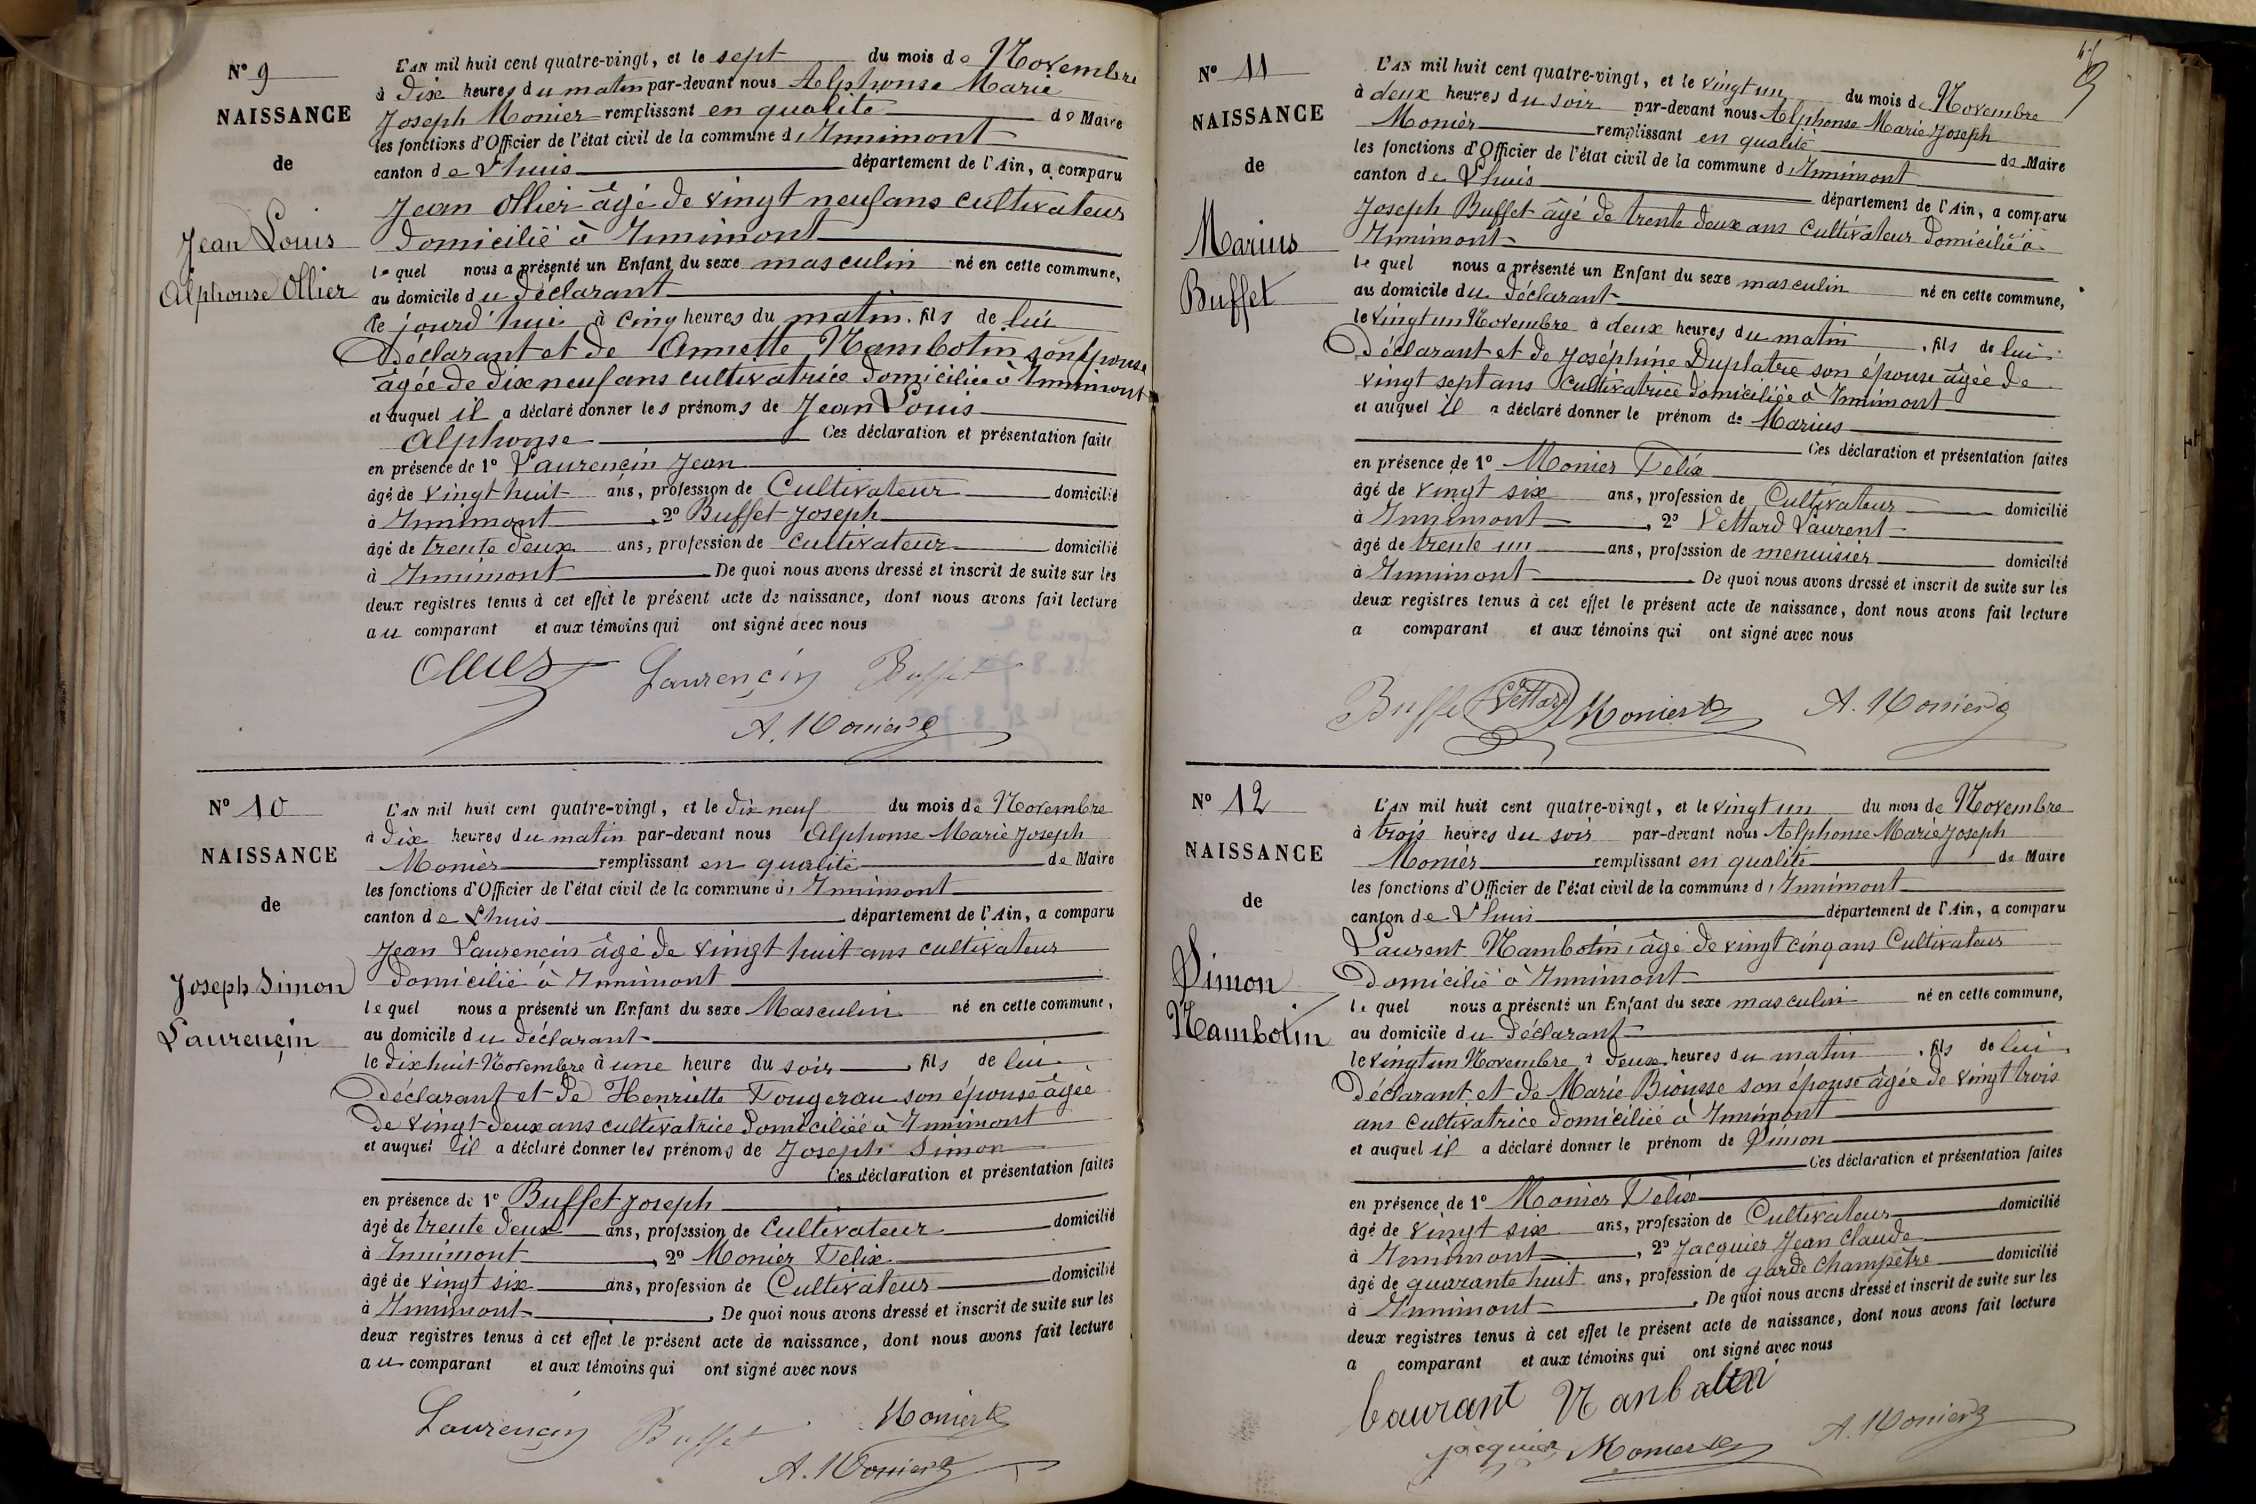 N° 9
NAISSANCE
de
Jean Louis
Alphonse Ollier
L'AN mil huit cent quatre-vingt, et le sept du mois de Novembre
à dix heures du matin par-devant nous Alphonse Marie
Joseph Monier remplissant en qualité de Maire
les fonctions d'Officier de l'état civil de la commune d'Innimont
canton de Lhuis département de l'Ain, a comparu
Jean Ollier âgé de vingt neuf ans cultivateur
domicilié à Innimont
lequel nous a présenté un Enfant du sexe masculin né en cette commune,
au domicile du déclarant
le jourd'hui à cinq heures du matin, fils de lui
déclarant et de Annette Nambotin son épouse
âgée de dix neuf ans cultivatrice domiciliée à Innimont
et auquel il a déclaré donner les prénoms de Jean Louis
Alphonse Ces déclaration et présentation faites
en présence de 1° Laurencin Jean
âgé de vingt huit ans, profession de Cultivateur domicilié
à Innimont, 2° Buffet Joseph
âgé de trente deux ans, profession de cultivateur domicilié
à Innimont De quoi nous avons dressé et inscrit de suite sur les
deux registres tenus à cet effet le présent acte de naissance, dont nous avons fait lecture
au comparant et aux témoins qui ont signé avec nous
Laurençin Buffet
A. Monier
N° 10
NAISSANCE
de
Joseph Simon
Laurençin
L'AN mil huit cent quatre-vingt, et le dix neuf du mois de Novembre
à dix heures du matin par-devant nous Alphonse Marie Joseph
Monier remplissant en qualité de Maire
les fonctions d'Officier de l'état civil de la commune d'Innimont
canton de Lhuis département de l'Ain, a comparu
Jean Laurencin âgé de vingt huit ans cultivateur
domicilié à Innimont
lequel nous a présenté un Enfant du sexe Masculin né en cette commune,
au domicile du déclarant
le dix huit Novembre à une heure du soir, fils de lui
déclarant et de Henriette Fougerau son épouse âgée
de vingt deux ans cultivatrice domiciliée à Innimont
et auquel il a déclaré donner les prénoms de Joseph Simon
Ces déclaration et présentation faites
en présence de 1° Buffet Joseph
âgé de trente deux ans, profession de Cultivateur domicilié
à Innimont, 2° Monier Felix
âgé de vingt six ans, profession de Cultivateur domicilié
à Innimont, De quoi nous avons dressé et inscrit de suite sur les
deux registres tenus à cet effet le présent acte de naissance, dont nous avons fait lecture
au comparant et aux témoins qui ont signé avec nous
Laurençin Buffet Monier
A. Monier
N° 11
NAISSANCE
de
Marius
Buffet
L'AN mil huit cent quatre-vingt, et le vingt un du mois de Novembre
à deux heures du soir par-devant nous Alphonse Marie Joseph
Monier remplissant en qualité de Maire
les fonctions d'Officier de l'état civil de la commune d'Innimont
canton de Lhuis département de l'Ain, a comparu
Joseph Buffet âgé de trente deux ans Cultivateur domicilié à
Innimont
lequel nous a présenté un Enfant du sexe masculin né en cette commune,
au domicile du déclarant
le vingt un Novembre à deux heures du matin, fils de lui
déclarant et de Joséphine Duplatre son épouse âgée de
vingt sept ans Cultivatrice domiciliée à Innimont
et auquel il a déclaré donner le prénom de Marius
Ces déclaration et présentation faites
en présence de 1° Monier Felix
âgé de vingt six ans, profession de Cultivateur domicilié
à Innimont, 2° Vettard Laurent
âgé de trente un ans, profession de menuisier domicilié
à Innimont. De quoi nous avons dressé et inscrit de suite sur les
deux registres tenus à cet effet le présent acte de naissance, dont nous avons fait lecture
a comparant et aux témoins qui ont signé avec nous
Buffet Vettard Monier A. Monier
N° 12
NAISSANCE
de
Simon
Nambotin
L'AN mil huit cent quatre-vingt, et le vingt un du mois de Novembre
à trois heures du soir par-devant nous Alphonse Marie Joseph
Monier remplissant en qualité de Maire
les fonctions d'Officier de l'état civil de la commune d'Innimont
canton de Lhuis département de l'Ain, a comparu
Laurent Nambotin, âgé de vingt cinq ans Cultivateur
Domicilié à Innimont
lequel nous a présenté un Enfant du sexe masculin né en cette commune,
au domicile du déclarant
le vingt un Novembre à deux heures du matin, fils de lui
Déclarant et de Marie Biousse son épouse âgée de vingt trois
ans cultivatrice domiciliée à Innimont
et auquel il a déclaré donner le prénom de Simon
Ces déclaration et présentation faites
en présence de 1° Monier Felix
âgé de vingt six ans, profession de Cultivateur domicilié
à Innimont, 2° Jacquier Jean Claude
âgé de quarante huit ans, profession de garde champêtre domicilié
à Innimont, De quoi nous avons dressé et inscrit de suite sur les
deux registres tenus à cet effet le présent acte de naissance, dont nous avons fait lecture
a comparant et aux témoins qui ont signé avec nous
Laurant Nanbatin
jacquier Monier A. Monier